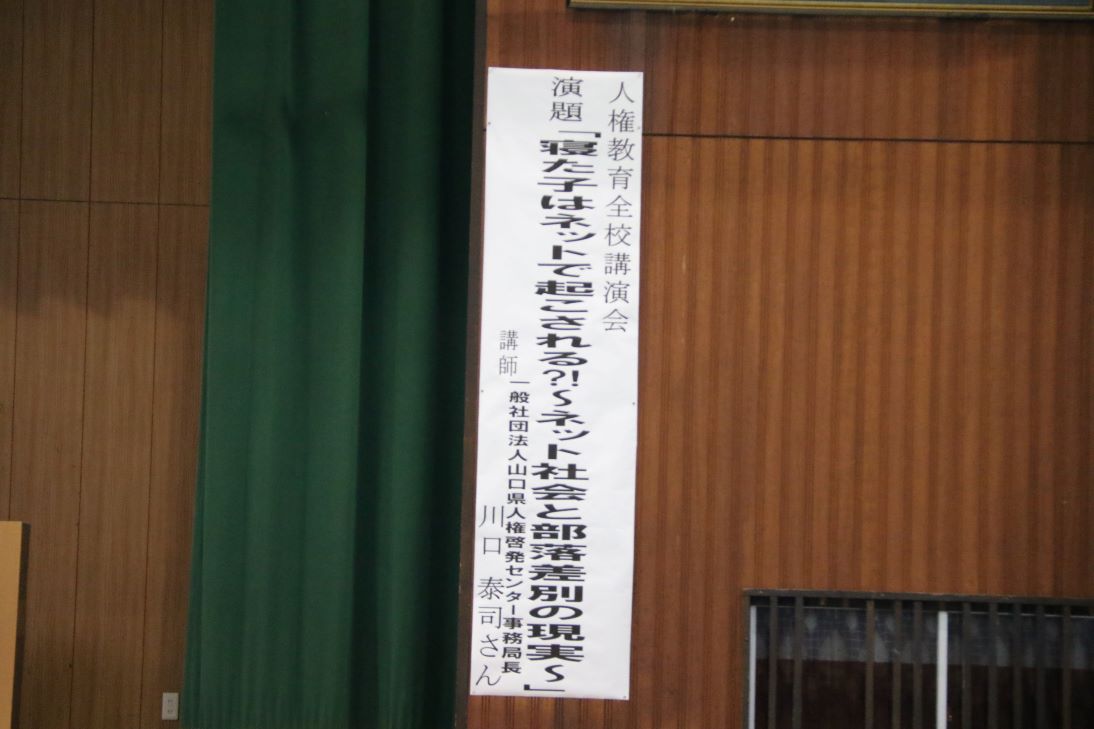 人権教育全校講演会
演題「寝た子はネットで起こされる?!～ネット社会と部落差別の現実～」
講師 一般社団法人山口県人権啓発センター事務局長
川口 泰司さん